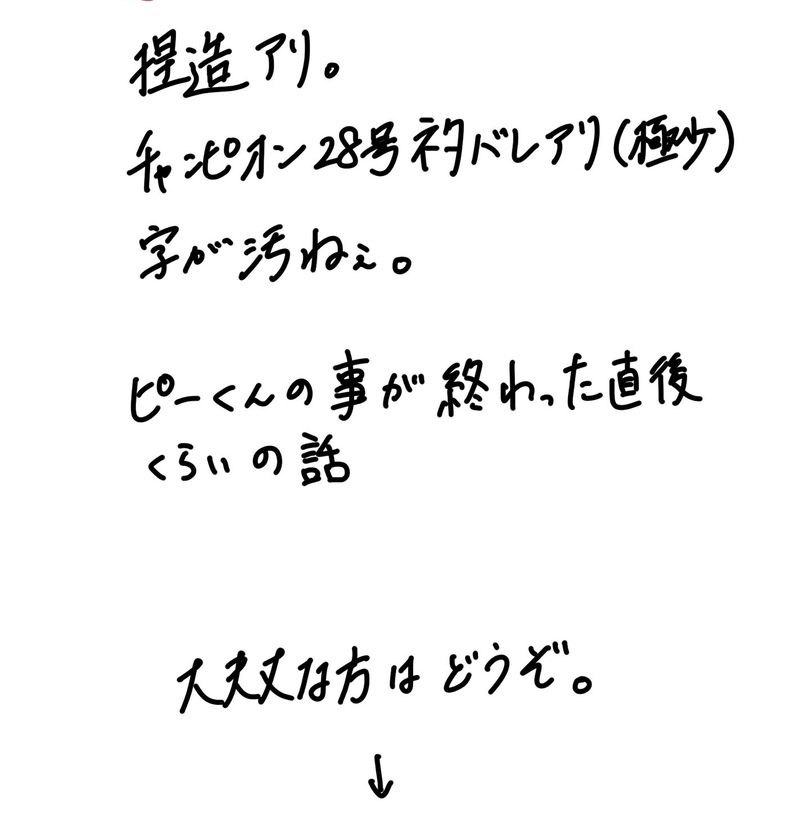 捏造アリ。
チャンピオン28号ネタバレアリ(極少)
字が汚ねぇ。
ピーくんの事が終わった直後
くらいの話
大丈夫な方はどうぞ。
↓